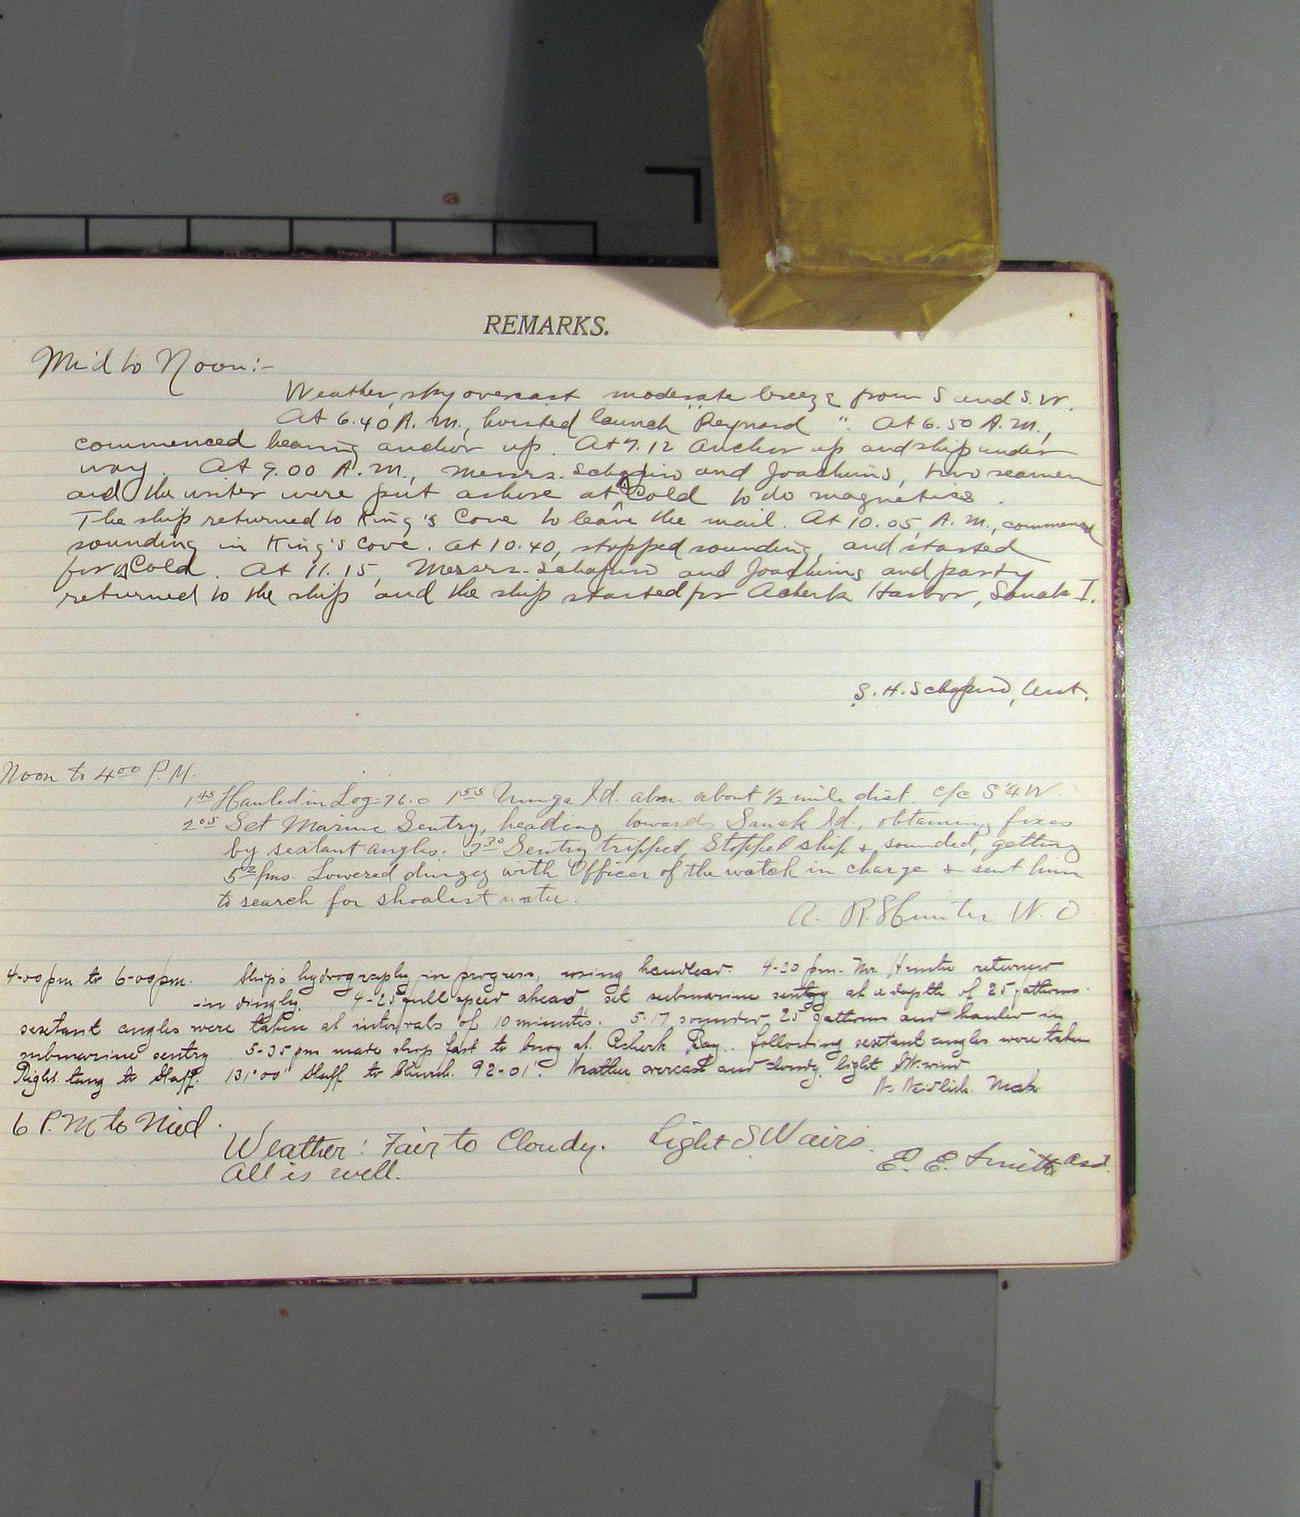 REMARKS.
Mid to Noon:-
Weather, sky overcast moderate breeze from S and S.W.
At 6.40 A.M., hoisted launch "Reynard". At 6.50 A.M.,
commenced heaving anchor up. At 7.12 Anchor up and ship under
way. At 9.00 A.M., Messrs. Schapiro and Joachims, two seamen
and the writer were put ashore at △Cold to do magnetics.
The ship returned to King's Cove to leave the mail. At 10.05, A.M., commenced
sounding in King's Cove. At 10.40, stopped sounding, and started
for △Cold. At 11.15, Messrs. Schapiro and Joachims and party
returned to the ship and the ship started for Acherk Harbor, Sanak I.
S. H. Schapiro,
Noon to 4 00 P.M.
1 45 Hauled in Log=76.0 1 55 Unga Id. abm. about 1/2 mile dist c/c
2 05 Set Marine Sentry, heading toward Sanak Id, obtaining fixes
by sextant angles. 3 30 Sentry tripped Stopped ship & sounded, getting
fms. Lowered dingey with Officer of the watch in charge & sent him
to search for shoalest water.
A. R. Hunter W. O
4-00pm to 6-00pm. Ship's hydrography in progress, using handlead. 4-20 pm. Mr. Hunter returned
in dinghy. 4-25 full speed ahead set submarine sentry at a depth of 25 fathoms.
sextant angles were taken at intervals of 10 minutes. 5-17 sounded 25 fathoms and hauled in
submarine sentry 5-35 pm made ship fast to buoy at Acherk Bay. following sextant angles were taken
Right tang to Staff. 131°00' Staff to Church. 92-01'. Weather overcast and cloudy, light SW. wind
6 P.M to Mid.
Weather: Fair to Cloudy. Light SW airs.
All is well.
E. E. Smith